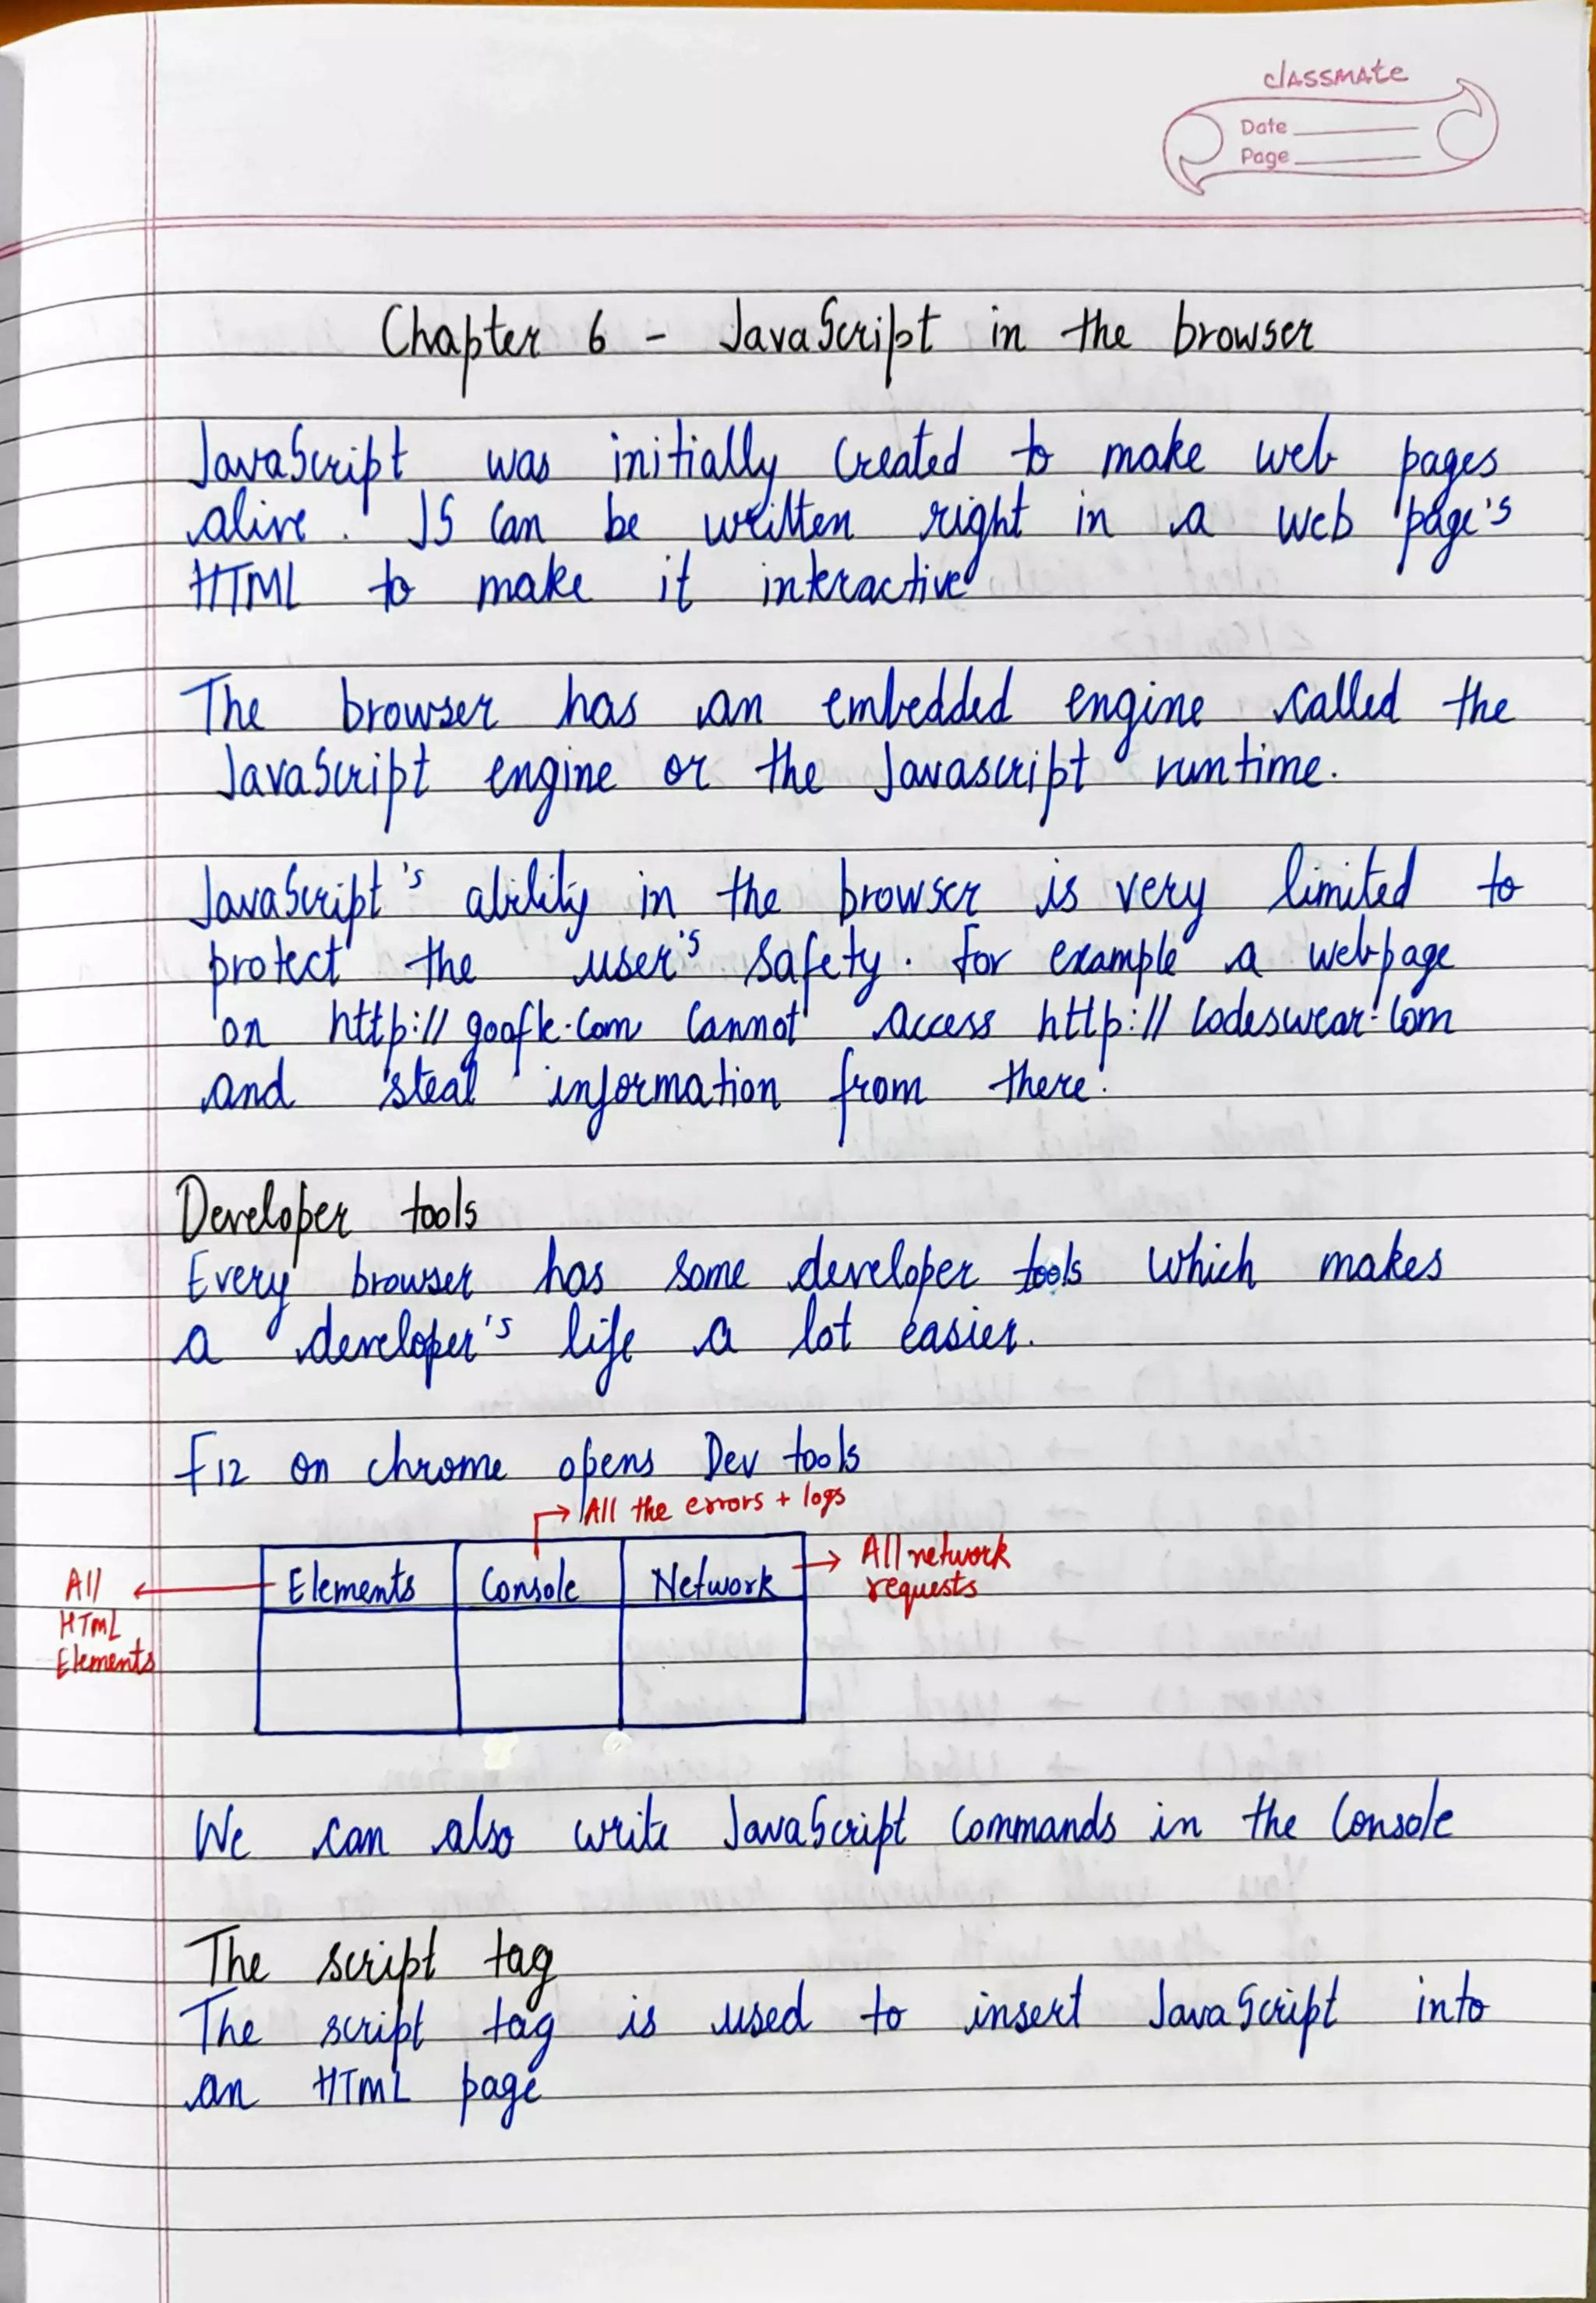 classmate
Date
Page
Chapter 6 - JavaScript in the browser
JavaScript was initially created to make web pages
alive. JS can be written right in a web page's
HTML to make it interactive
The browser has an embedded engine called the
JavaScript engine or the Javascript runtime.
JavaScript's ability in the browser is very limited to
protect the user's safety. for example a webpage
on http://goofle.com cannot access http://codeswear.com
and steal information from there.
Developer tools
Every browser has some developer tools which makes
a developer's life a lot easier.
F12 on chrome opens Dev tools
All the errors + logs
All network
requests
Elements Console Network
All
HTML
Elements
We can also write JavaScript commands in the Console
The script tag
The script tag is used to insert JavaScript into
an HTML page